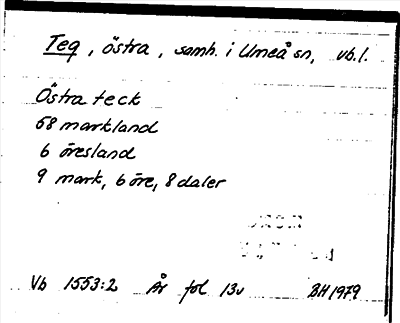 Teg, östra, samh. i Umeå sn, vb.l.
Östra teck
68 markland
6 öresland
9 mark, 6 öre, 8 daler
Vb 1553:2 År fol 13v BH 1979